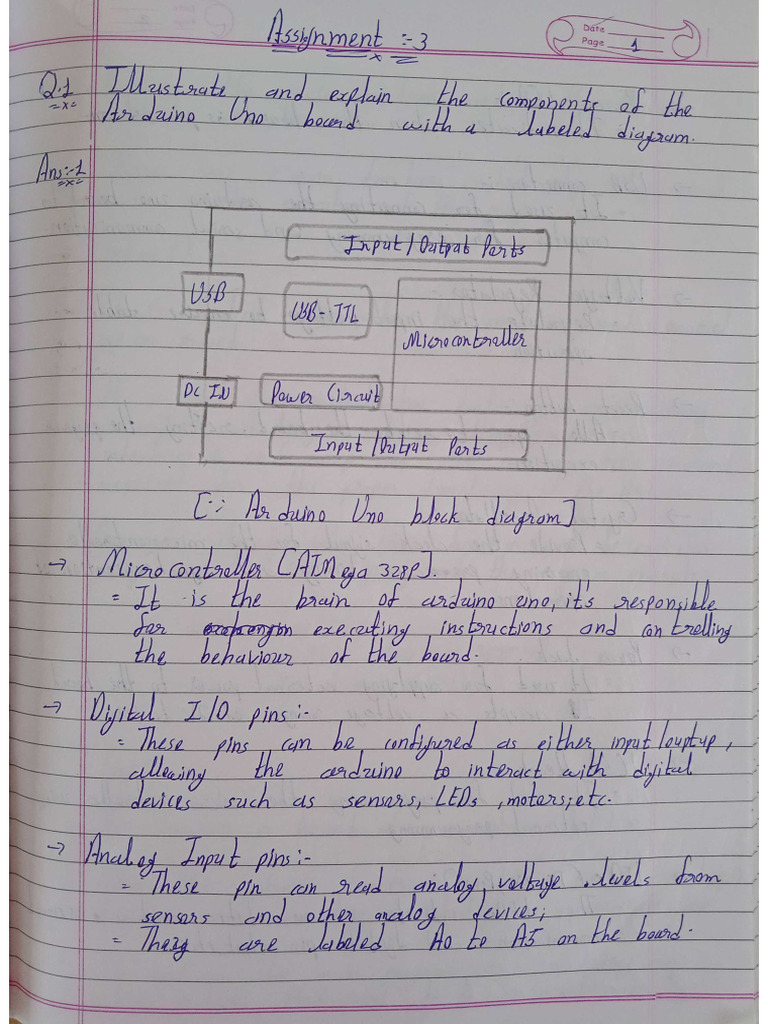 Assignment :- 3
Date
Page 1
Q.1 Illustrate and explain the components of the
Arduino Uno board with a labeled diagram.
Ans:-1
Input/Output Ports
USB
USB-TTL
Microcontroller
DC IN
Power Circuit
Input/Output Ports
[∵ Arduino Uno block diagram]
→ Microcontroller [ATMega 328P].
= It is the brain of arduino uno, it's responsible
for executing instructions and controlling
the behaviour of the board.
→ Digital I/O pins:-
= These pins can be configured as either input/ouptup,
allowing the arduino to interact with digital
devices such as sensors, LEDs, motors, etc.
→ Analog Input pins:-
= These pin can read analog voltage levels from
sensors and other analog devices;
= are labeled A0 to A5 on the board.